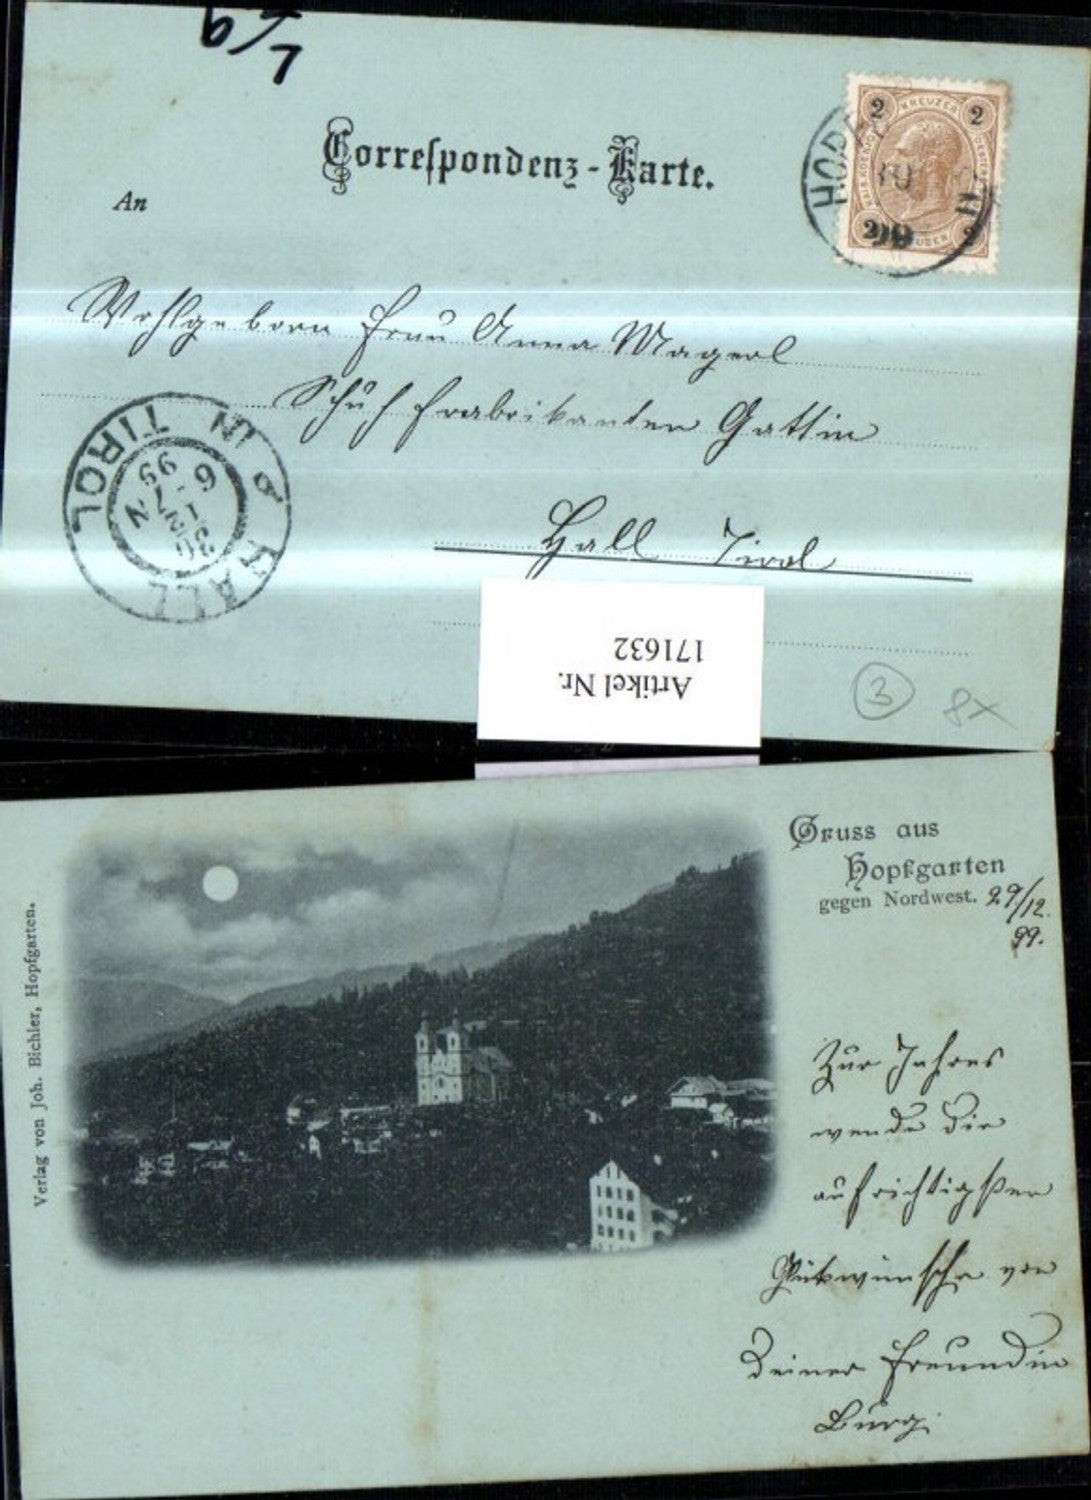 L/9
Correspondenz-Karte.
An
2 KREUZER 2
HOPF
99
Wohlgeboren Frau Anna Magerl
Schuhfabrikanten Gattin
Hall Tirol
HALL IN TIROL
30 12
6 N
99
Artikel Nr.
171632
3 8x
Gruss aus
Hopfgarten
gegen Nordwest. 29/12.
99.
Verlag von Joh. Bichler, Hopfgarten.
Zur Jahres
wende die
aufrichtigsten
Glükwünsche von
Deiner Freundin
Burgi